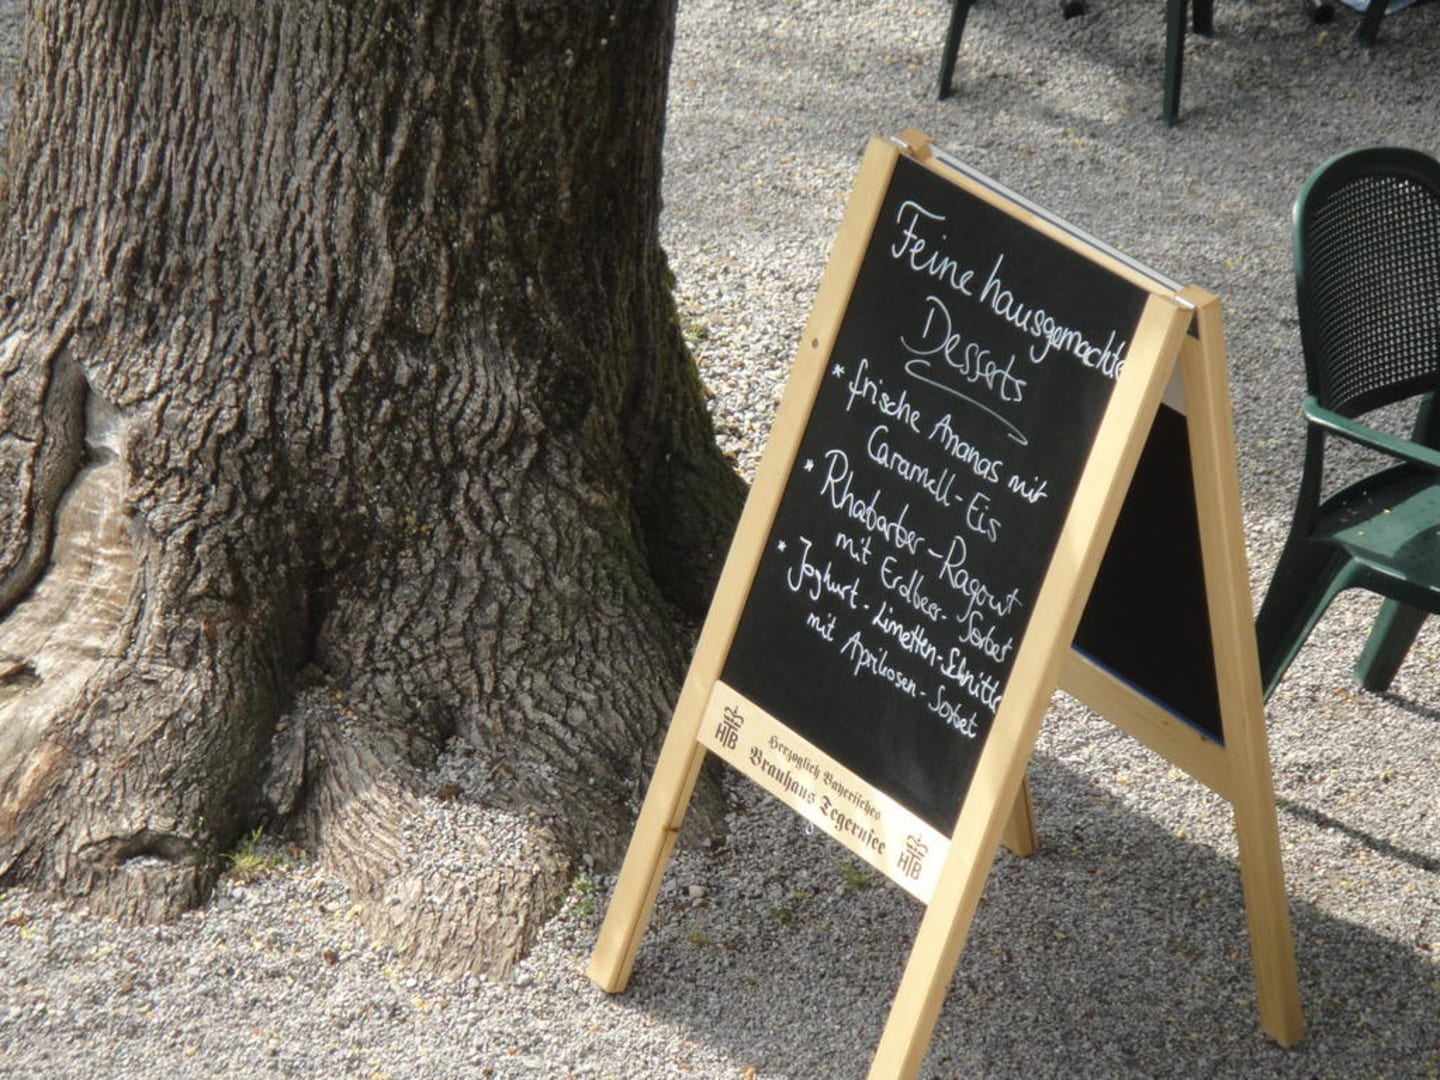 Feine hausgemachte
Desserts
* frische Ananas mit
Caramell-Eis
* Rhabarber-Ragout
mit Erdbeer-Sorbet
* Joghurt-Limetten-Schnitte
mit Aprikosen-Sorbet
HTB
Herzoglich Bayerisches
Brauhaus Tegernsee
HTB